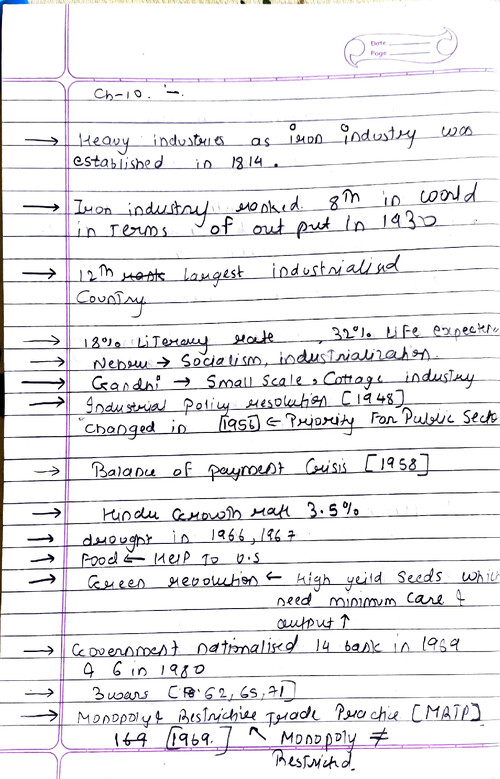 Date
Page
Ch-10. :-
→ Heavy industries as iron industry was
established in 1814.
→ Iron industry ranked 8th in world
in terms of out put in 1930
→ 12th rank largest industrialised
Country
→ 18% Literary rate , 32% Life expectan
→ Nehru → Socialism, industrialization.
→ Gandhi → Small scale, Cottage industry
→ Industrial Policy resolution [1948]
changed in [1956] ← Priority For Public Secto
→ Balance of payment Crisis [1958]
→ Hindu Growth rate 3.5%
→ drought in 1966, 1967
→ Food ← Help To U.S
→ Green revolution ← High yeild seeds which
need minimum care &
output ↑
→ Government nationalised 14 bank in 1969
& 6 in 1980
→ 3 wars [62, 65, 71]
→ Monopoly & Restrictive Trade Practice [MRTP]
169 [1969.] ↖ Monopoly ≠
Restrictd.